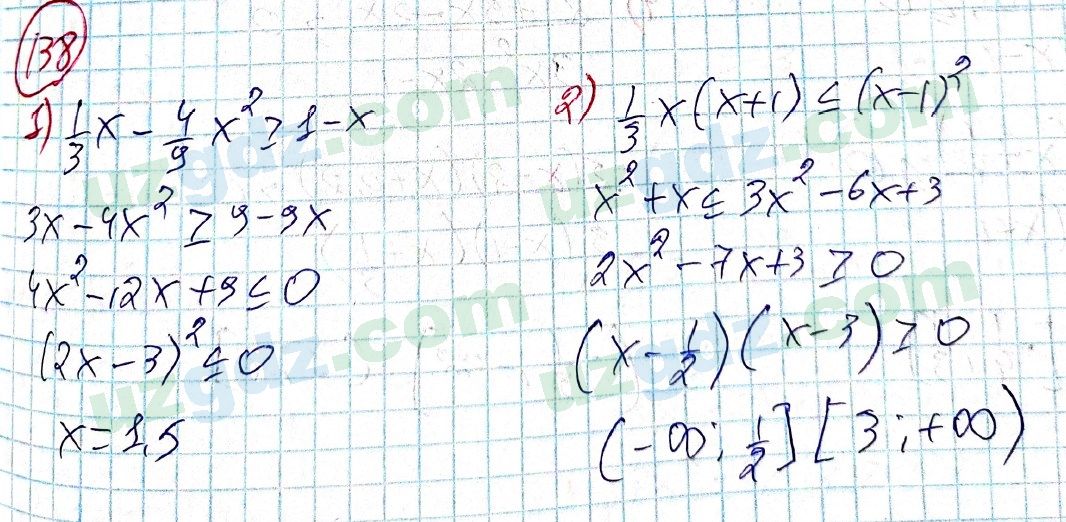 138
1) 1/3 x - 4/9 x² ≥ 1 - x
3x - 4x² ≥ 9 - 9x
4x² - 12x + 9 ≤ 0
(2x - 3)² ≤ 0
x = 1,5
2) 1/3 x (x+1) ≤ (x-1)²
x² + x ≤ 3x² - 6x + 3
2x² - 7x + 3 ≥ 0
(x - 1/2)(x - 3) ≥ 0
(-∞; 1/2] [3; +∞)
uzgdz.com
uzgdz.com
uzgdz.com
uzgdz.com